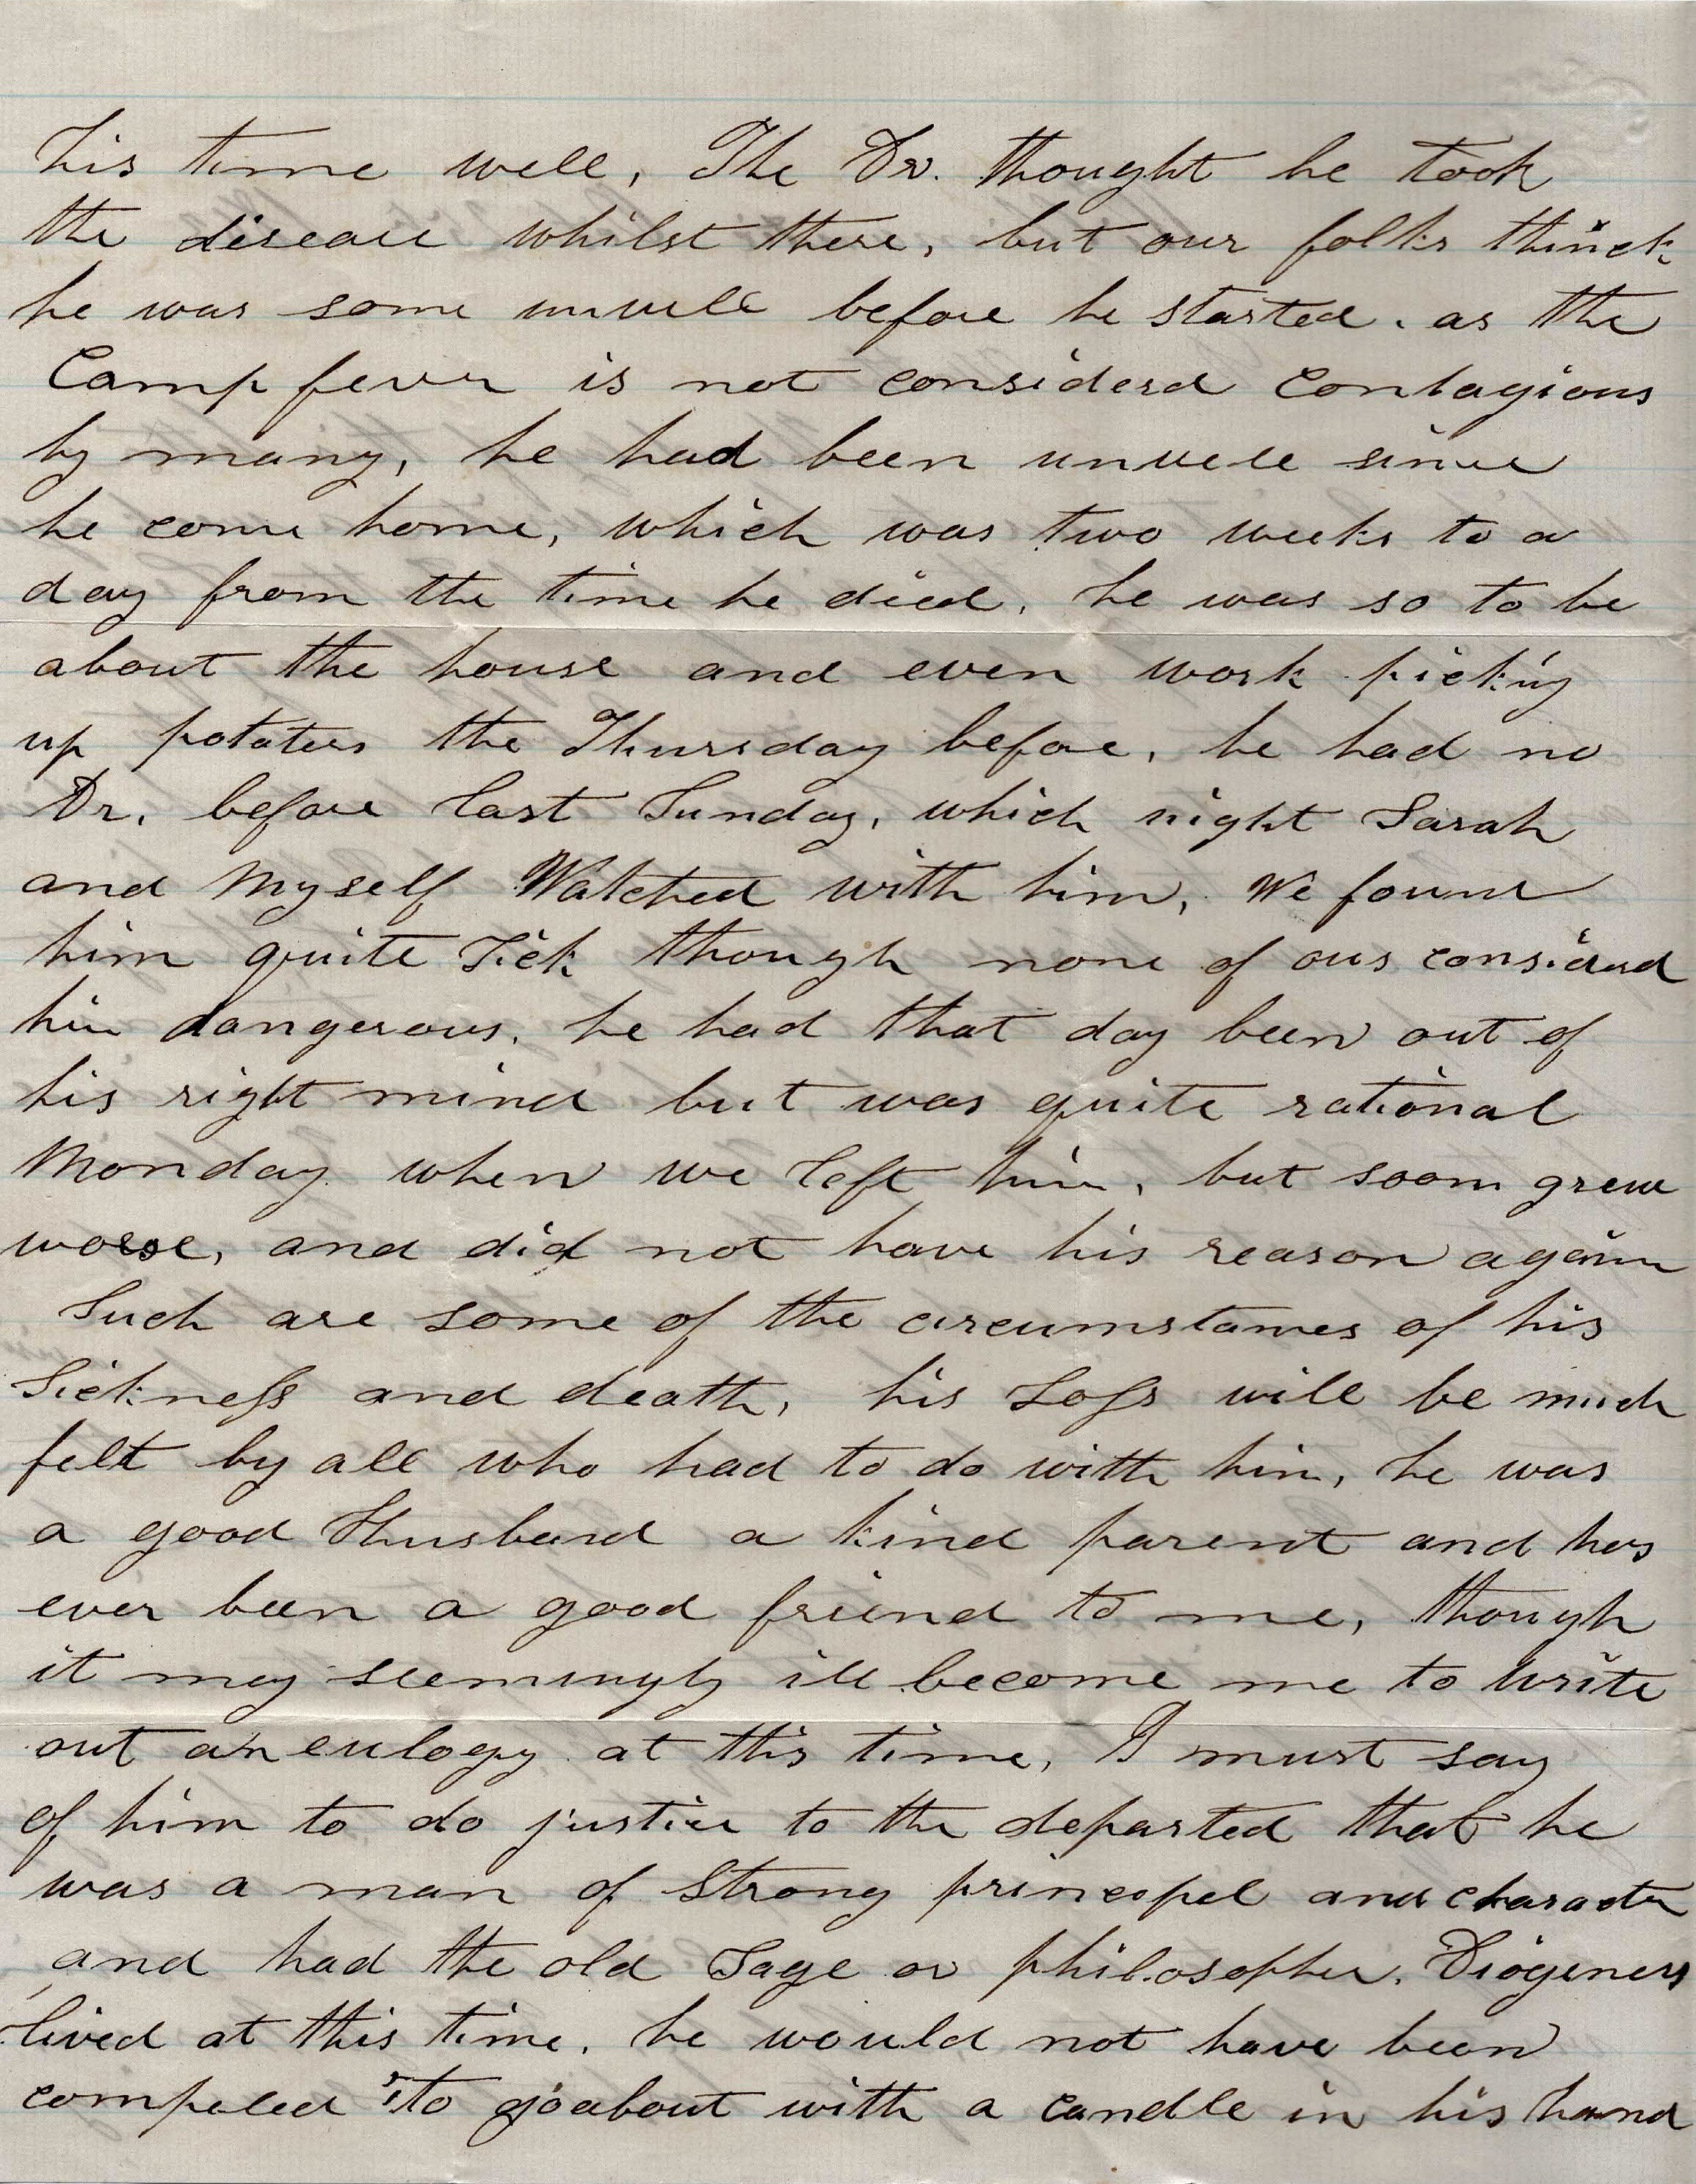 his time well, The Dr. thought he took
the disease whilst there, but our folks thinck
he was some unwell before he started. as the
Camp fever is not considerd contagious
by many, he had been unwell since
he come home, which was two weeks to a
day from the time he died. he was so to be
about the house and even work picking
up potatoes the Thursday before, he had no
Dr. before last Sunday, which night Sarah
and Myself Watched with him, We found
him quite Sick though none of ous considerd
him dangerous. he had that day been out of
his right mind but was quite rational
Monday when we left him, but soom grew
worse, and did not have his reason again
Such are some of the circumstances of his
Sickness and death, his Loss will be much
felt by all who had to do with him, he was
a good Husband a kind parent and has
ever been a good friend to me, though
it may seemingly ill become me to write
out an eulogy at this time, I must say
of him to do justice to the departed that he
was a man of Strong principel and character
and had the old Sage or philosopher. Diogeners
lived at this time. he would not have been
compeled to go about with a candle in his hand